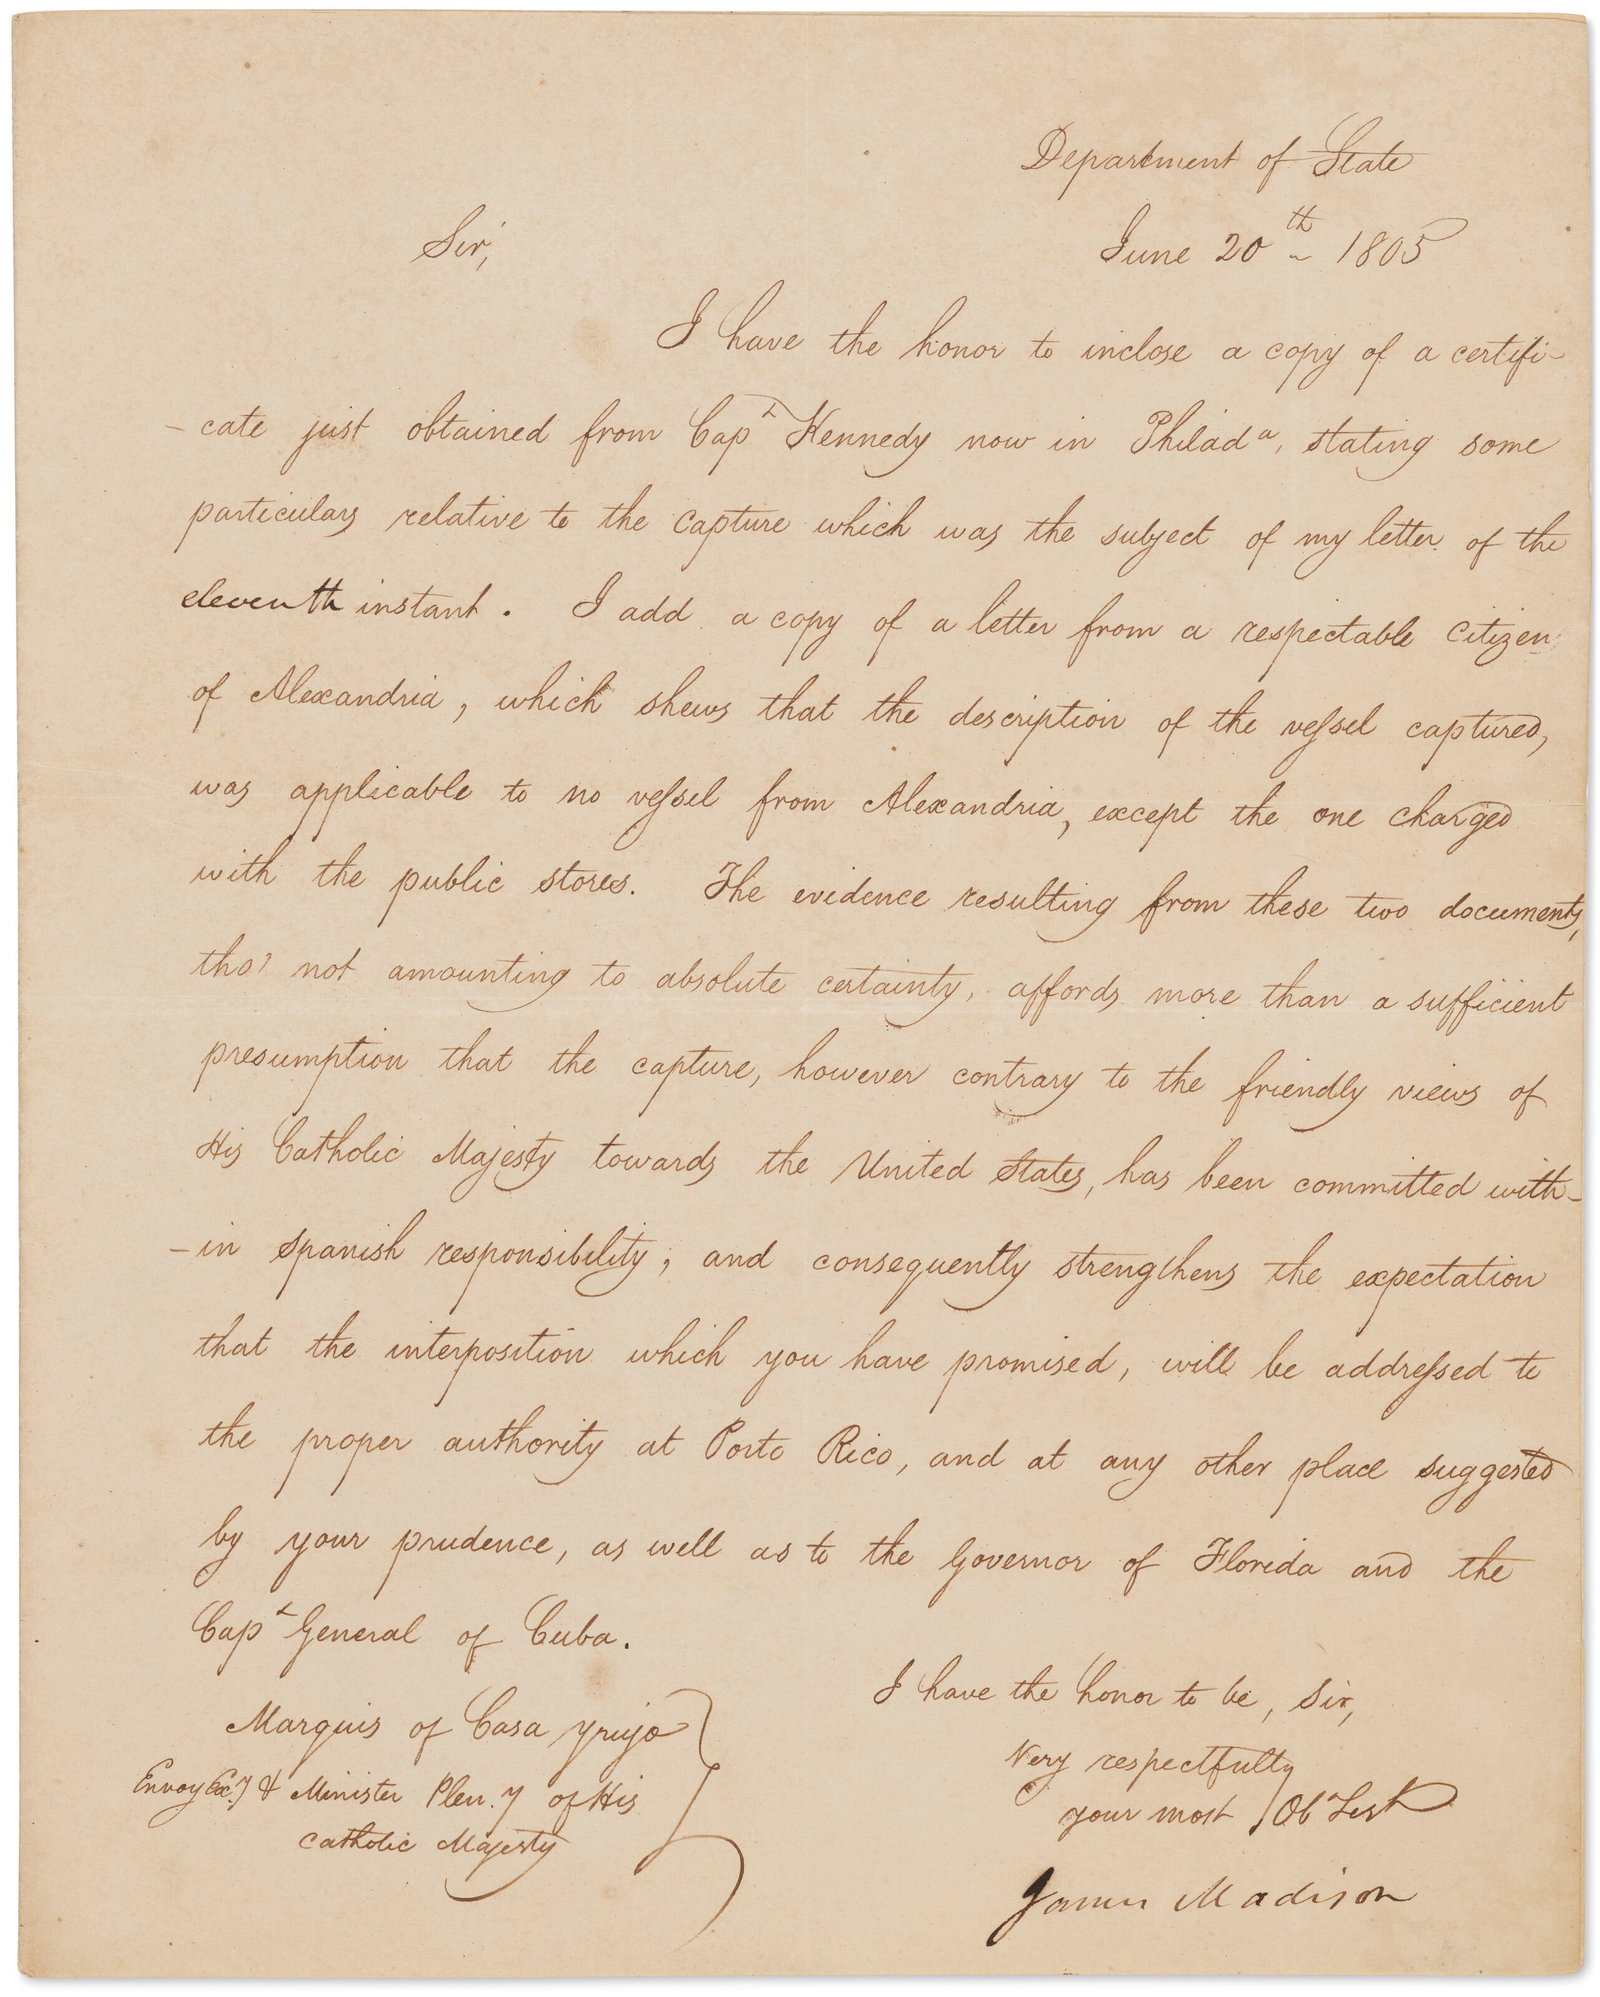 Department of State
June 20th 1805
Sir,
I have the honor to inclose a copy of a certifi-
-cate just obtained from Capt Kennedy now in Philada, stating some
particulars relative to the capture which was the subject of my letter of the
eleventh instant. I add a copy of a letter from a respectable citizen
of Alexandria, which shews that the description of the vessel captured,
was applicable to no vessel from Alexandria, except the one charged
with the public stores. The evidence resulting from these two documents,
tho' not amounting to absolute certainty, affords more than a sufficient
presumption that the capture, however contrary to the friendly views of
His Catholic Majesty towards the United States, has been committed with-
-in Spanish responsibility, and consequently strengthens the expectation
that the interposition which you have promised, will be addressed to
the proper authority at Porto Rico, and at any other place suggested
by your prudence, as well as to the Governor of Florida and the
Capt General of Cuba.
I have the honor to be, Sir,
Very respectfully
your most Ob Sert
James Madison
Marquis of Casa Yrujo
Envoy Ex.y & Minister Plen.y of His
Catholic Majesty